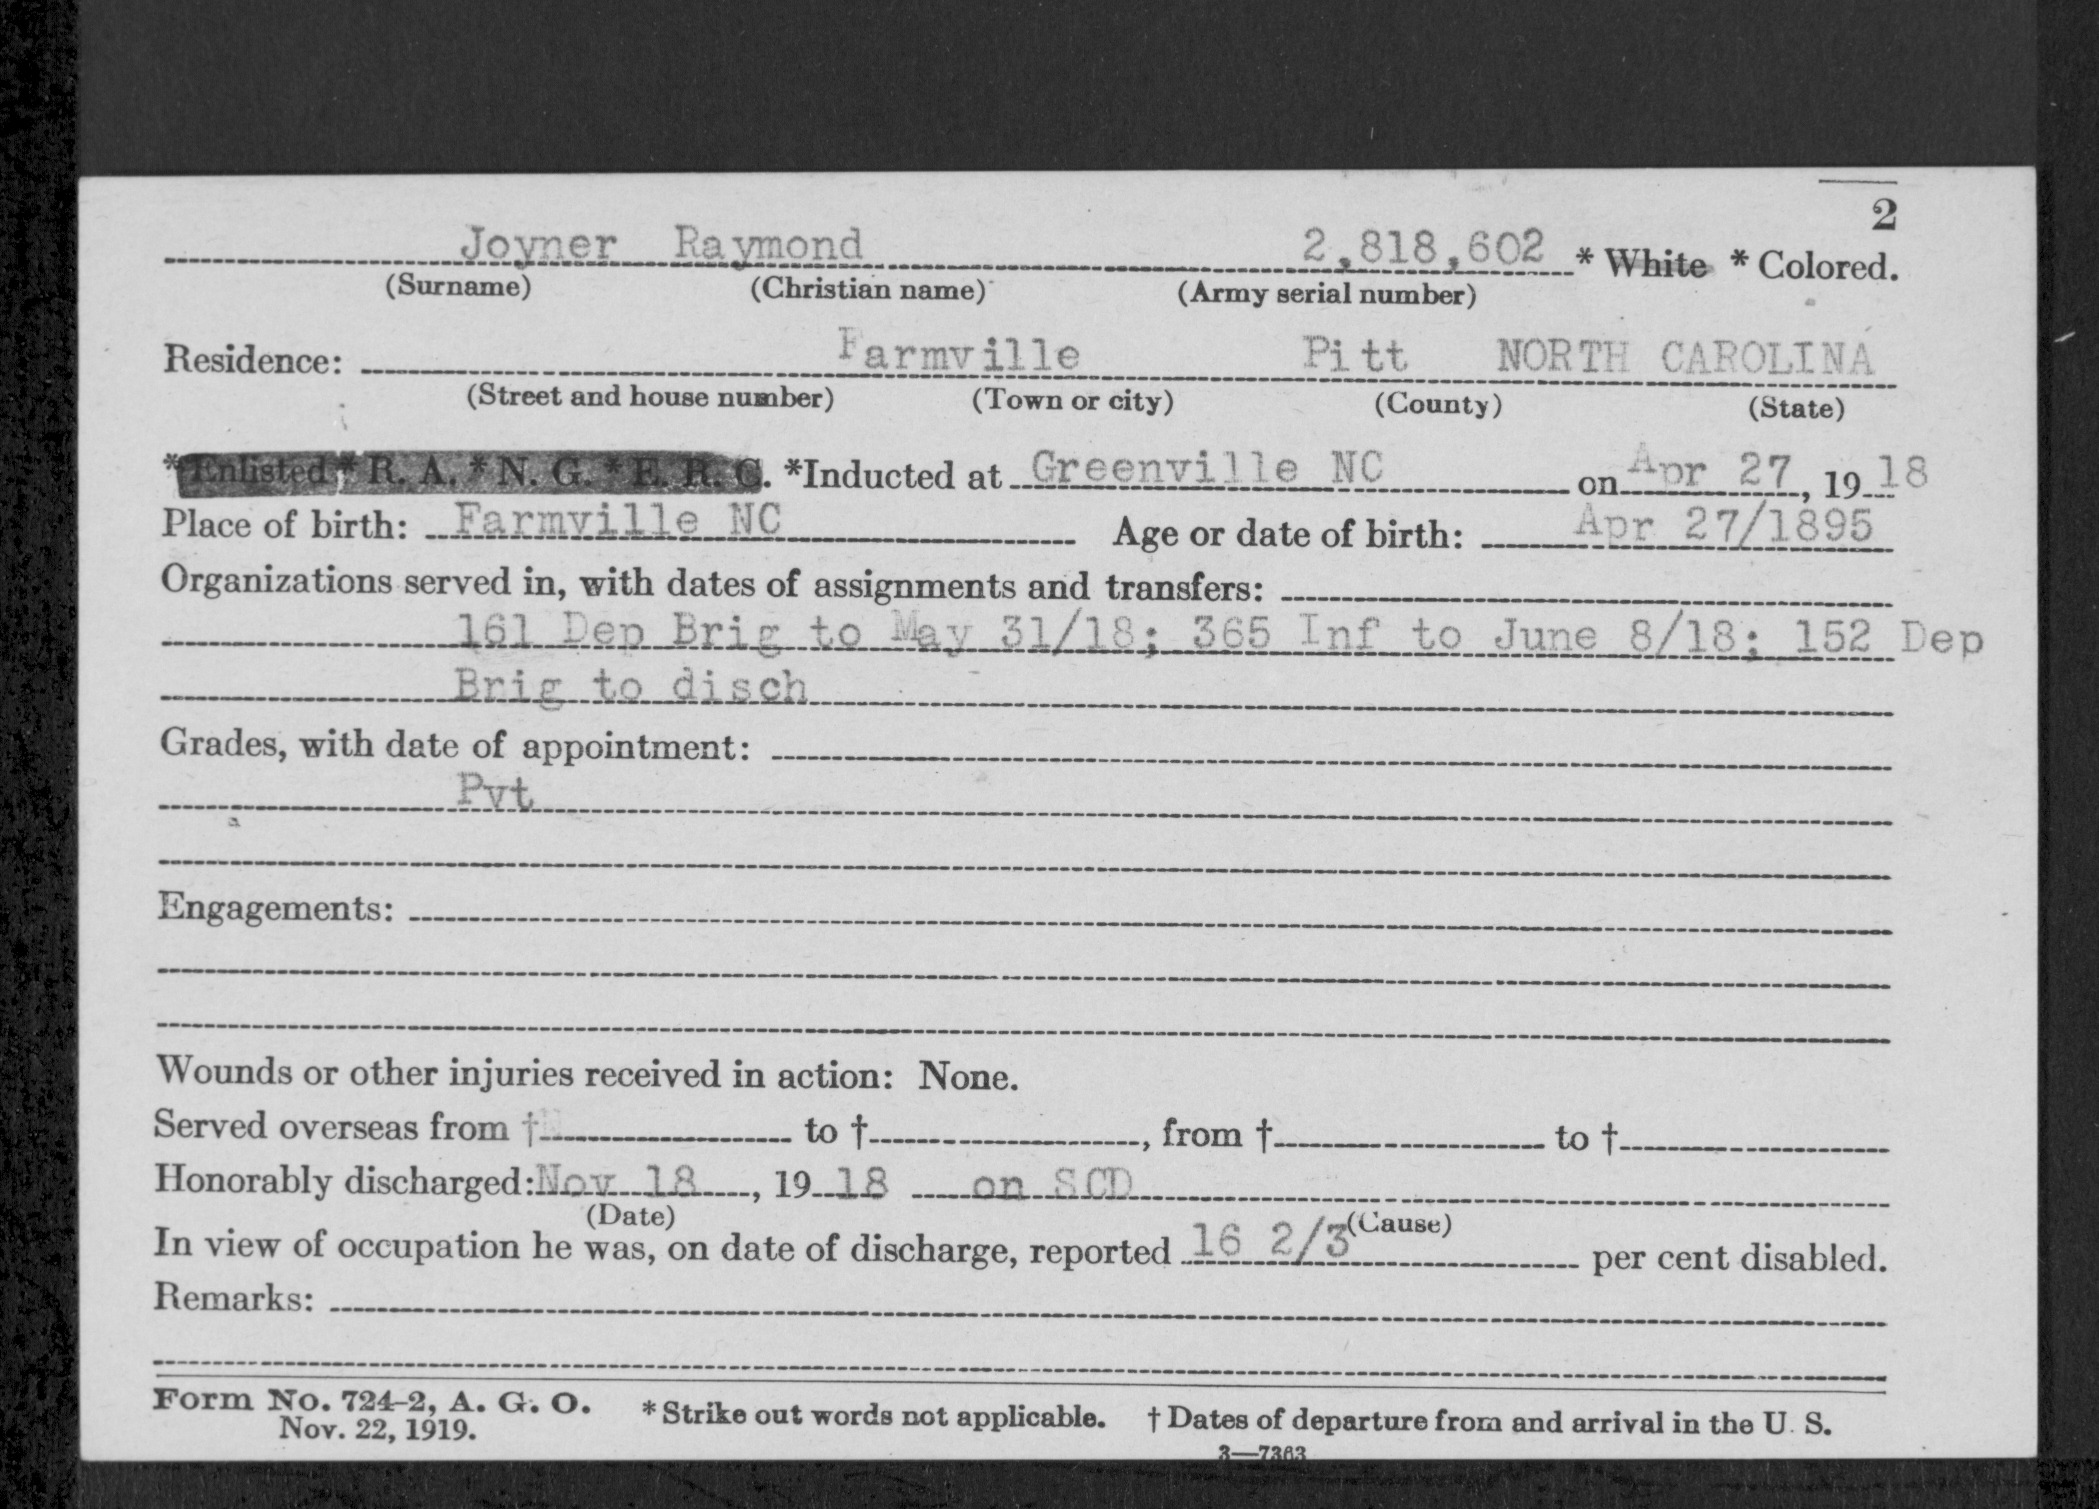 2
Joyner Raymond 2,818,602 * White * Colored.
(Surname) (Christian name) (Army serial number)
Residence: Farmville Pitt NORTH CAROLINA
(Street and house number) (Town or city) (County) (State)
*Enlisted * R. A. * N. G. * E. R. C. *Inducted at Greenville NC on Apr 27, 1918
Place of birth: Farmville NC Age or date of birth: Apr 27/1895
Organizations served in, with dates of assignments and transfers:
161 Dep Brig to May 31/18; 365 Inf to June 8/18; 152 Dep
Brig to disch
Grades, with date of appointment:
Pvt
Engagements:
Wounds or other injuries received in action: None.
Served overseas from † to †, from † to †
Honorably discharged: Nov 18, 1918 on SCD
(Date) (Cause)
In view of occupation he was, on date of discharge, reported 16 2/3 per cent disabled.
Remarks:
Form No. 724-2, A. G. O. * Strike out words not applicable. † Dates of departure from and arrival in the U. S.
Nov. 22, 1919.
3—7363